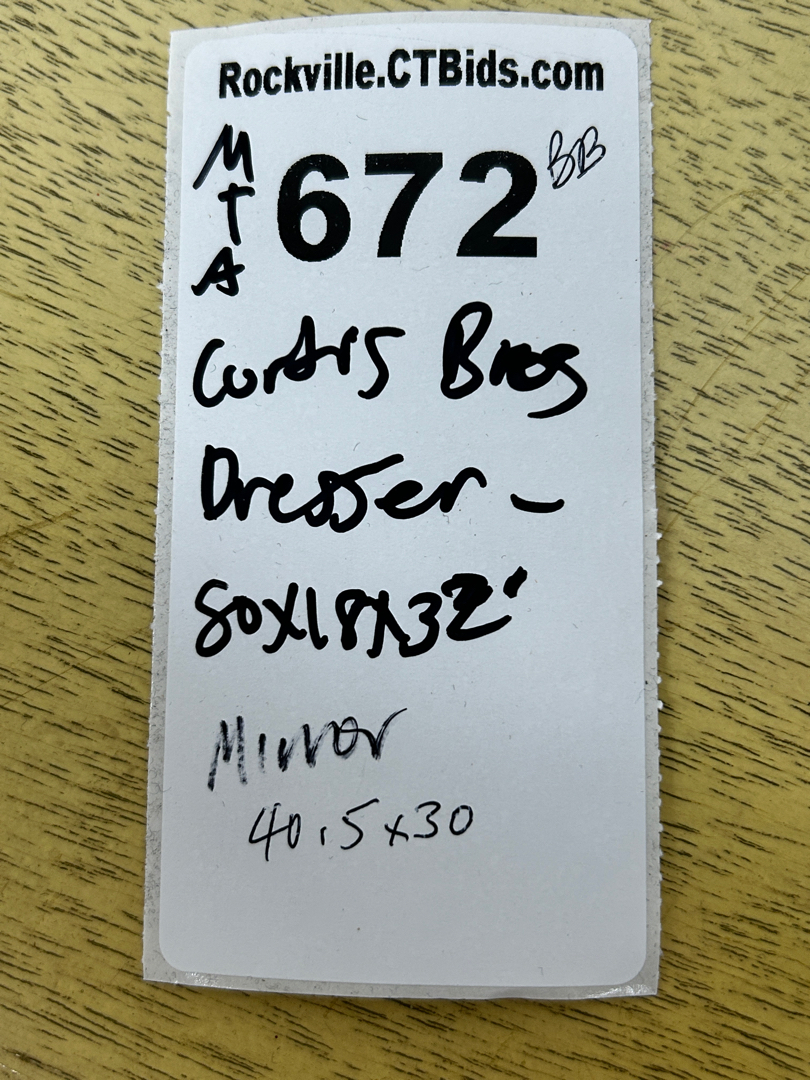 Rockville.CTBids.com
MTA
672
BB
Curtis Bros
Dresser -
80x18x32'
Mirror
40.5x30